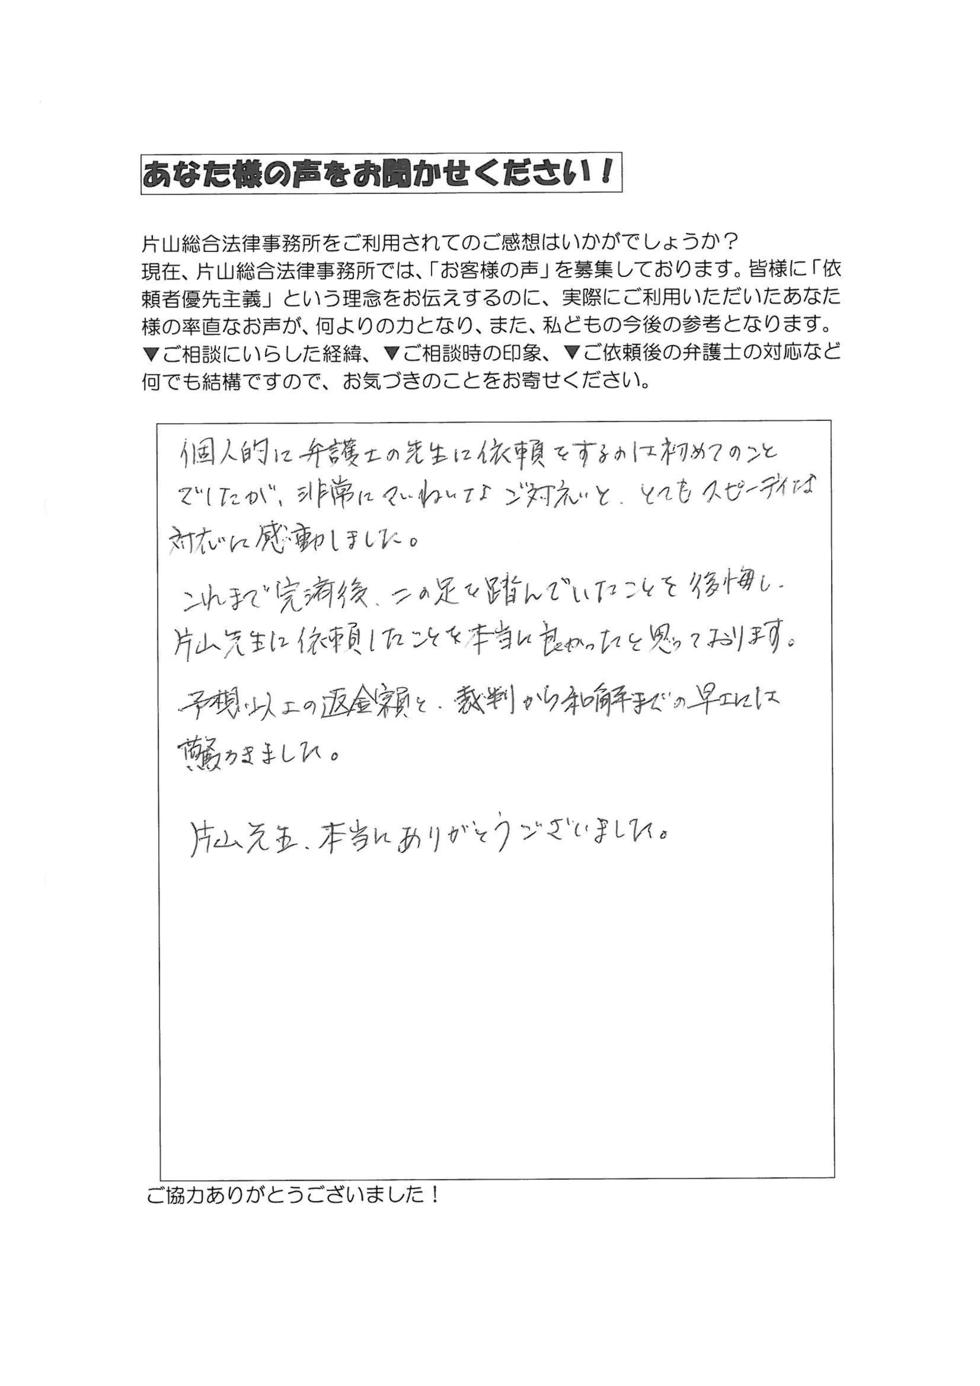 あなた様の声をお聞かせください！
片山総合法律事務所をご利用されてのご感想はいかがでしょうか？
現在、片山総合法律事務所では、「お客様の声」を募集しております。皆様に「依
頼者優先主義」という理念をお伝えするのに、実際にご利用いただいたあなた
様の率直なお声が、何よりの力となり、また、私どもの今後の参考となります。
▼ご相談にいらした経緯、▼ご相談時の印象、▼ご依頼後の弁護士の対応など
何でも結構ですので、お気づきのことをお寄せください。
個人的に弁護士の先生に依頼をするのは初めてのこと
でしたが、非常にていねいなご対応と、とてもスピーディな
対応に感動しました。
これまで完済後、二の足を踏んでいたことを後悔し、
片山先生に依頼したことを本当に良かったと思っております。
予想以上の返金額と、裁判から和解までの早さには
驚きました。
片山先生、本当にありがとうございました。
ご協力ありがとうございました！